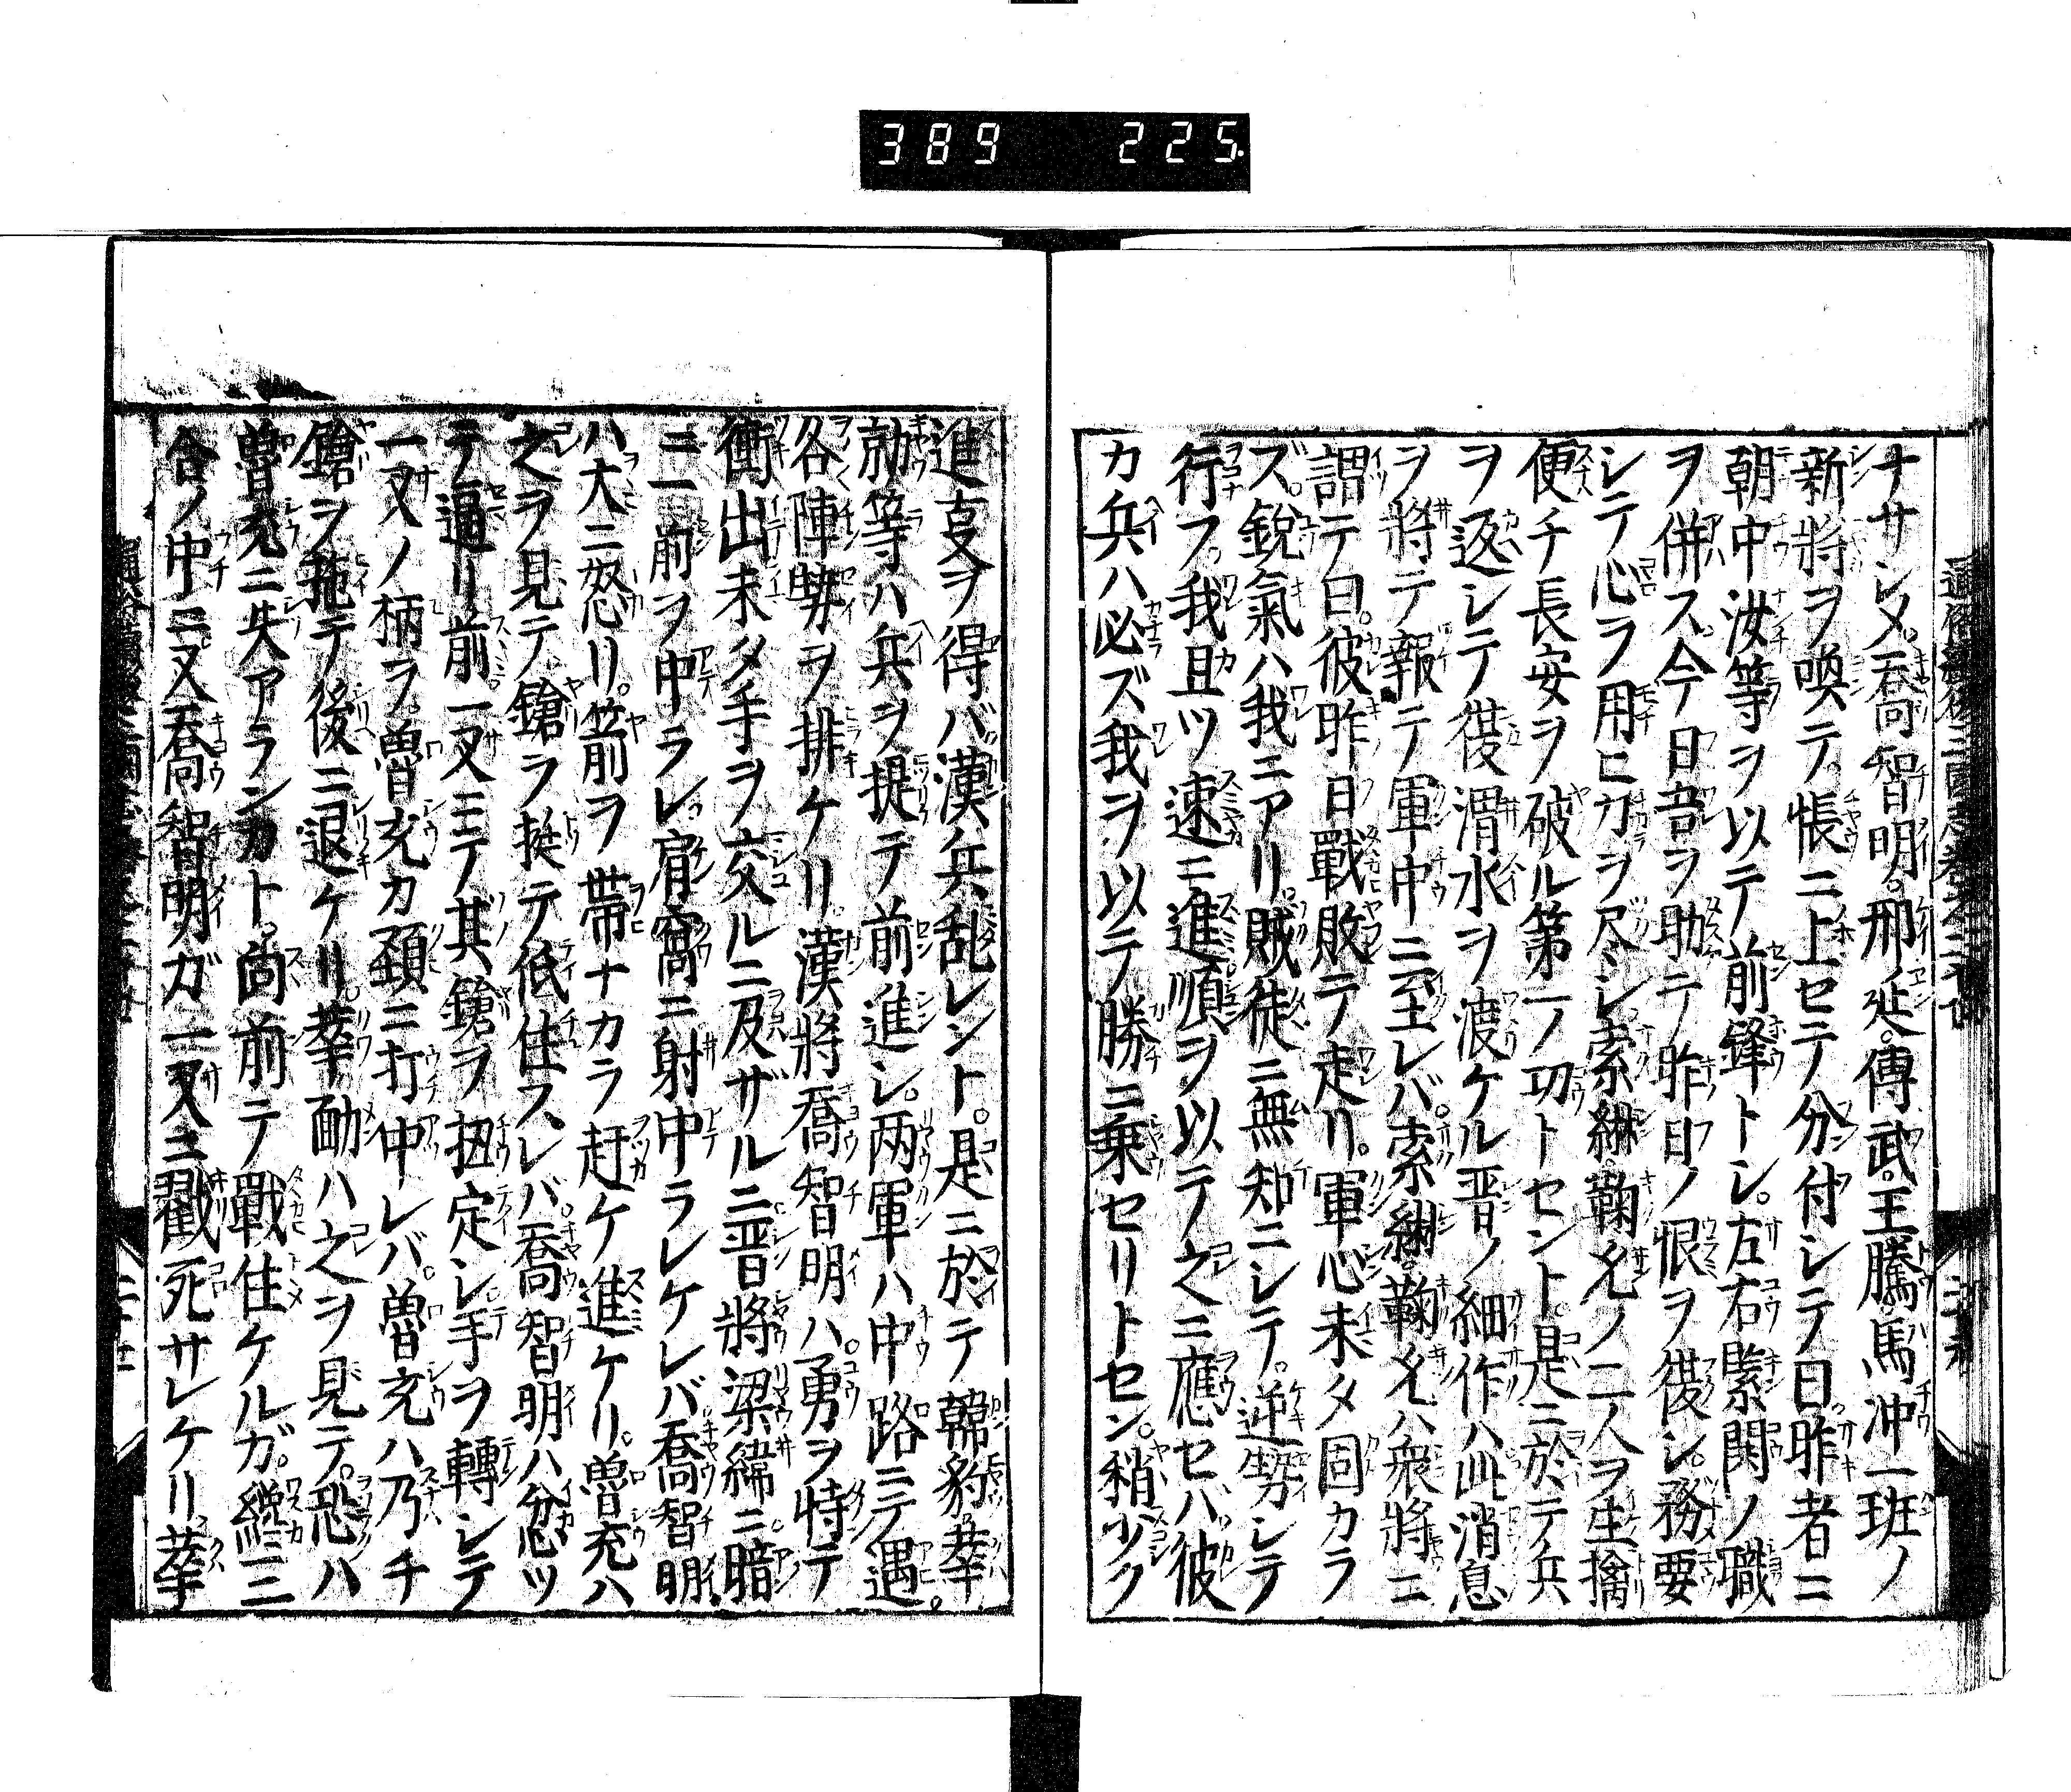 389 225
ナサシメ。喬智明。刑延。傅武。王騰。馬沖一班ノ
新將ヲ喚テ。帳ニ上セテ分付シテ曰昨者ニ
朝中汝等ヲ以テ前鋒トシ。左右緊関ノ職
ヲ併ス。今日吾ヲ助テ昨日ノ恨ヲ復シ。務要
シテ心ヲ用ヒカヲ尽シ索綝。鞠允ノ二人ヲ生擒
便チ長安ヲ破ル第一ノ功トセント。是ニ於テ兵
ヲ返シテ復渭水ヲ渡ケル晋ノ細作ハ此消息
ヲ將テ報テ軍中ニ至レバ。索綝。鞠允ハ衆將ニ
謂テ曰。彼昨日戰敗テ走リ。軍心未タ固カラ
ズ。鋭氣ハ我ニアリ。賊徒ニ無知ニシテ。逆勢シテ
行フ。我且ツ速ニ進順ヲ以テ之ニ應セバ。彼
カ兵ハ必ズ我ヲ以テ勝ニ乗セリトセン。稍少ク
進支ヲ得バ漢兵乱レント。是ニ於テ韓豹。莘
勍等ハ兵ヲ提テ前進シ。两軍ハ中路ニテ遇。
各陣勢ヲ排ケリ。漢將喬智明ハ勇ヲ恃テ
衝出未タ手ヲ交ルニ及ザルニ晋將梁緯ニ暗
ニ前ヲ中ラレ。肩窩ニ射中ラレケレバ喬智明
ハ大ニ怒リ。箭ヲ帯ナカラ赶ケ進ケリ。魯充ハ
之ヲ見テ。鎗ヲ挺テ低住フレバ。喬智明ハ忿ツ
テ逼リ前一叉ニテ其鎗ヲ扭定シ。手ヲ轉シテ
一叉ノ柄ヲ。魯充カ頚ニ打中レバ。魯充ハ乃チ
鎗ヲ拖テ後ニ退ケリ。莘勔ハ之ヲ見テ。恐ハ
魯充ニ失アランカト。尚前テ戰住ケルガ。纔ニ三
合ノ中ニ又喬智明ガ一叉ニ戳死サレケリ莘